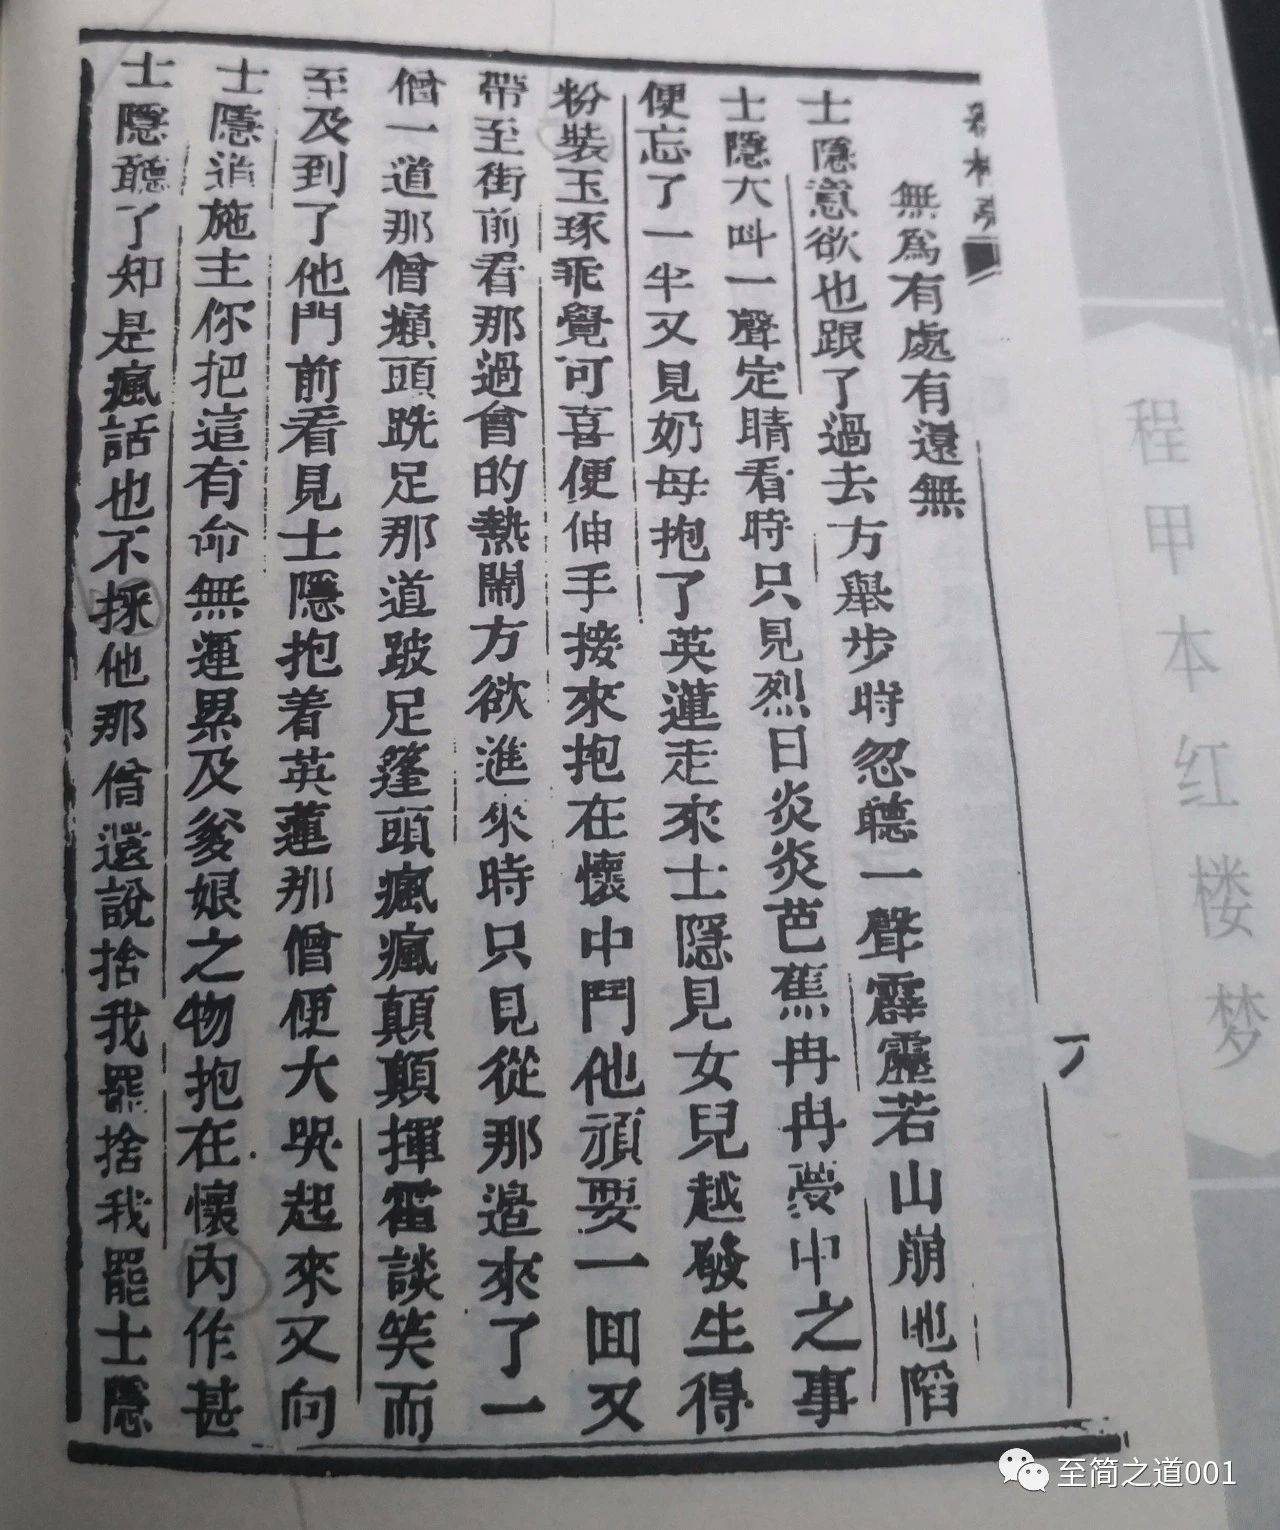 無爲有處有還無
士隱意欲也跟了過去方舉步時忽聽一聲霹靂若山崩地陷
士隱大叫一聲定睛看時只見烈日炎炎芭蕉冉冉夢中之事
便忘了一半又見奶母抱了英蓮走來士隱見女兒越發生得
粉裝玉琢乖覺可喜便伸手接來抱在懷中鬥他頑耍一回又
帶至街前看那過會的熱鬧方欲進來時只見從那邊來了一
僧一道那僧癩頭跣足那道跛足蓬頭瘋瘋顛顛揮霍談笑而
至及到了他門前看見士隱抱着英蓮那僧便大哭起來又向
士隱道施主你把這有命無運累及爹娘之物抱在懷內作甚
士隱聽了知是瘋話也不採他那僧還說捨我罷捨我罷士隱
程甲本红楼梦
至简之道001